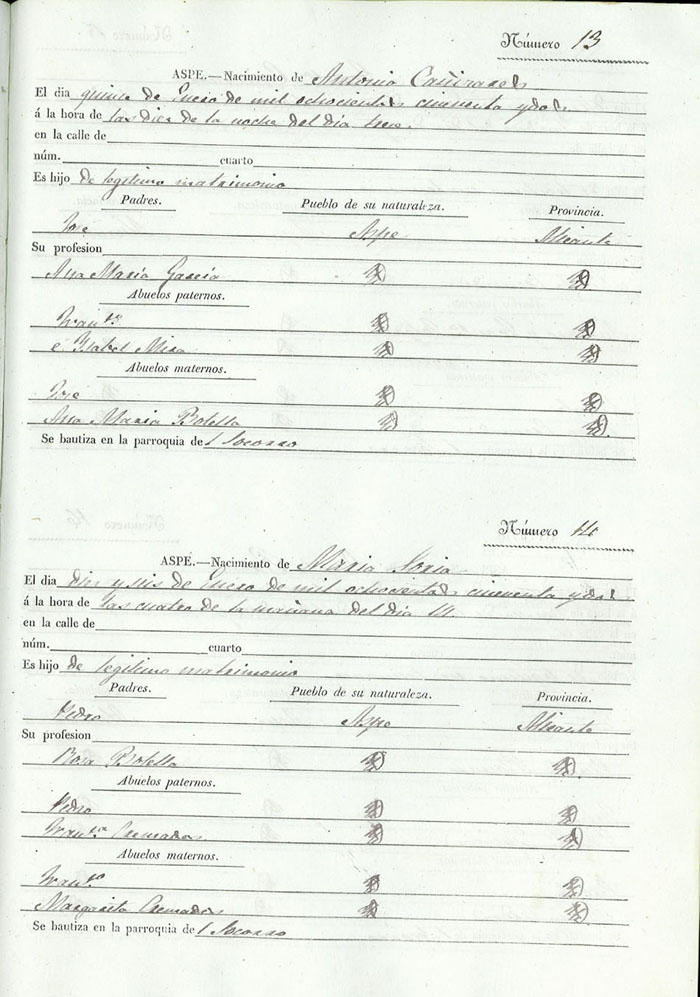 Número 13
ASPE.—Nacimiento de Antonia Cañizares
El dia quince de Enero de mil ochocientos cincuenta y dos
á la hora de las diez de la noche del dia trece.
en la calle de
núm. cuarto
Es hijo de legitimo matrimonio
Padres. Pueblo de su naturaleza. Provincia.
José Aspe Alicante
Su profesion
Ana Maria Garcia
Abuelos paternos.
Fran.co
é Ysabel Mira
Abuelos maternos.
José
Ana Maria Botella
Se bautiza en la parroquia del Socorro
Número 14
ASPE.—Nacimiento de Maria Soria
El dia diez y seis de Enero de mil ochocientos cincuenta y dos
á la hora de las cuatro de la mañana del dia
en la calle de
núm. cuarto
Es hijo de legitimo matrimonio
Padres. Pueblo de su naturaleza. Provincia.
Pedro Aspe Alicante
Su profesion
Rosa Botella
Abuelos paternos.
Pedro
Fran.ca Cremades
Abuelos maternos.
Fran.co
Margarita Cremades
Se bautiza en la parroquia del Socorro